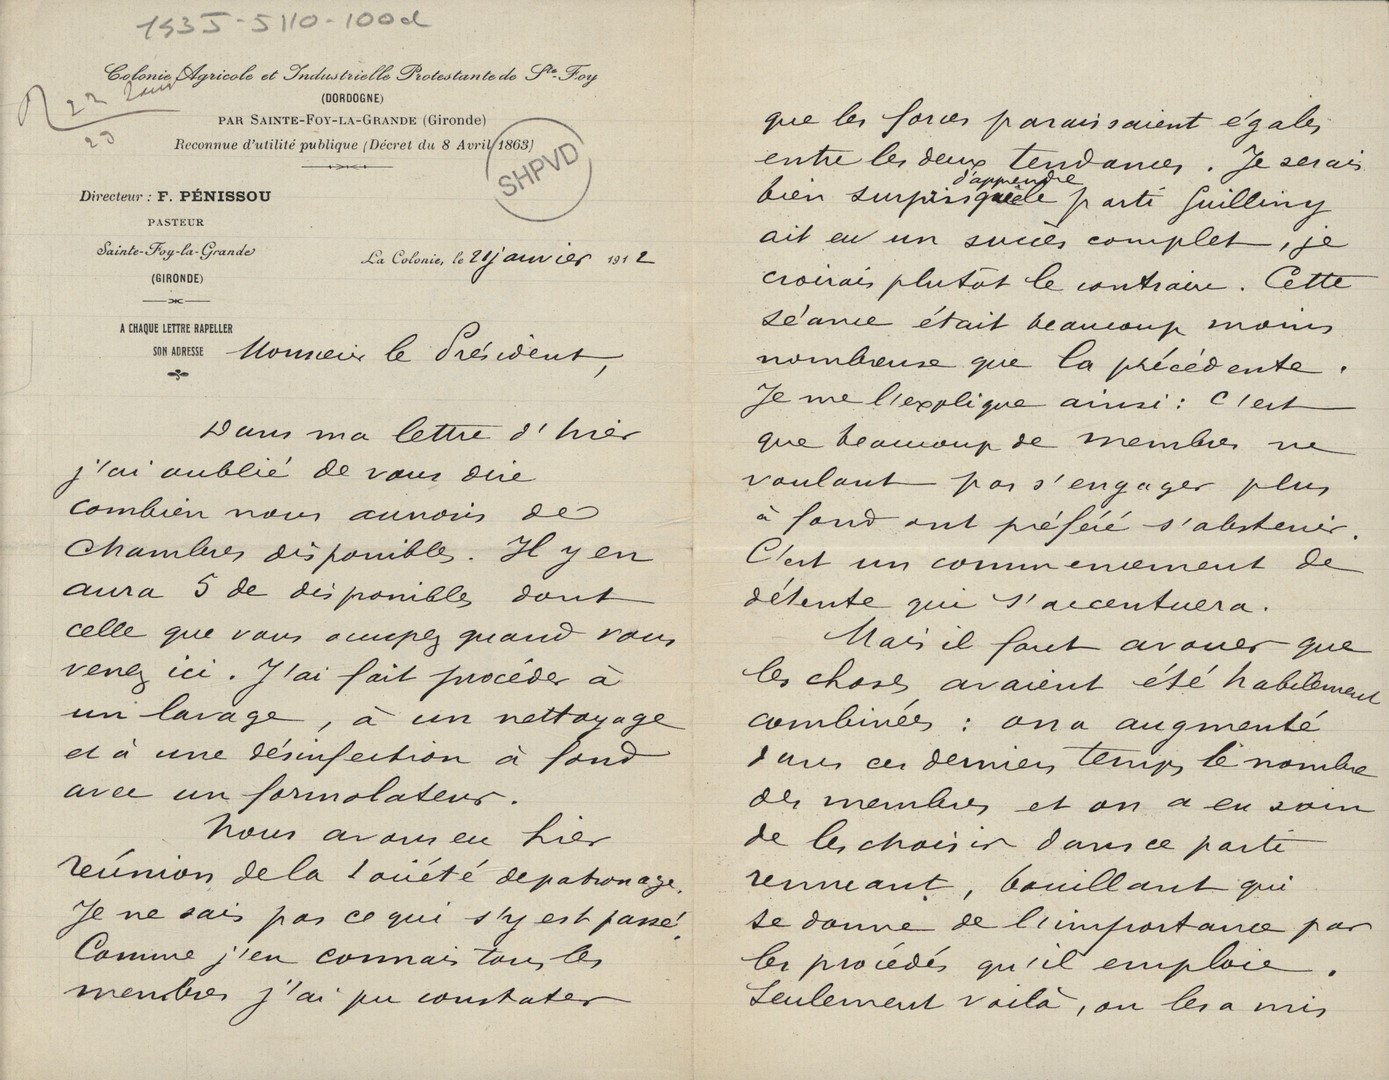 193J-5110-100d
Colonie Agricole et Industrielle Protestante de Ste-Foy
(DORDOGNE)
PAR SAINTE-FOY-LA-GRANDE (Gironde)
Reconnue d'utilité publique (Décret du 8 Avril 1863)
R 22
23
SHPVD
Directeur : F. PÉNISSOU
PASTEUR
Sainte-Foy-la-Grande
(GIRONDE)
La Colonie, le 21 janvier 1912
A CHAQUE LETTRE RAPELLER
SON ADRESSE
Monsieur le Président,
Dans ma lettre d'hier
j'ai oublié de vous dire
combien nous aurions de
chambres disponibles. Il y en
aura 5 de disponibles dont
celle que vous occupez quand vous
venez ici. J'ai fait procéder à
un lavage, à un nettoyage
et à une désinfection à fond
avec un formolateur.
Nous avons eu hier
réunion de la Société de patronage.
Je ne sais pas ce qui s'y est passé.
Comme j'en connais tous les
membres j'ai pu constater
que les forces paraissaient égales
entre les deux tendances. Je serais
d'apprendre
bien surpris que le parti Guilliny
ait eu un succès complet, je
croirais plutôt le contraire. Cette
séance était beaucoup moins
nombreuse que la précédente.
Je me l'explique ainsi : c'est
que beaucoup de membres ne
voulant pas s'engager plus
à fond ont préféré s'abstenir.
C'est un commencement de
détente qui s'accentuera.
Mais il faut avouer que
les choses avaient été habilement
combinées : on a augmenté
dans ces derniers temps le nombre
des membres et on a eu soin
de les choisir dans ce parti
remuant, bouillant qui
se donne de l'importance par
les procédés qu'il emploie.
Seulement voilà, on les a mis